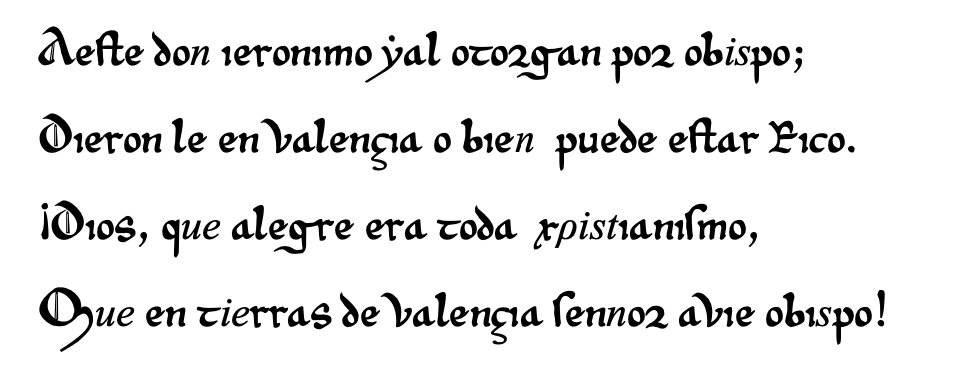 Aeſte don ıeronımo ẏal otorgan por obispo;
Dıeron le en valençıa o bıen puede eſtar Rico.
¡Dıos, que alegre era toda xριstıanıſmo,
Que en tierras de valençıa ſennor avıe obıspo!